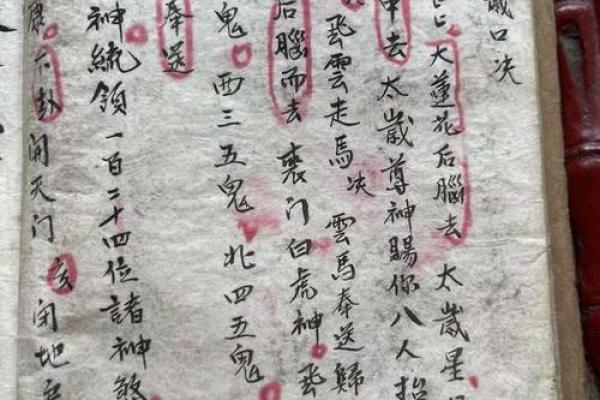 歲口决
大蓮花后腦去 太歲星
中去 太歲尊神賜你八人抬
飛雲走馬决 雲馬奉送歸
后腦而去 喪门白虎神 飛
鬼 西三五鬼 北四五鬼
奉送
神統領一百二十四位諸神煞
下卦開天门 亥闭地